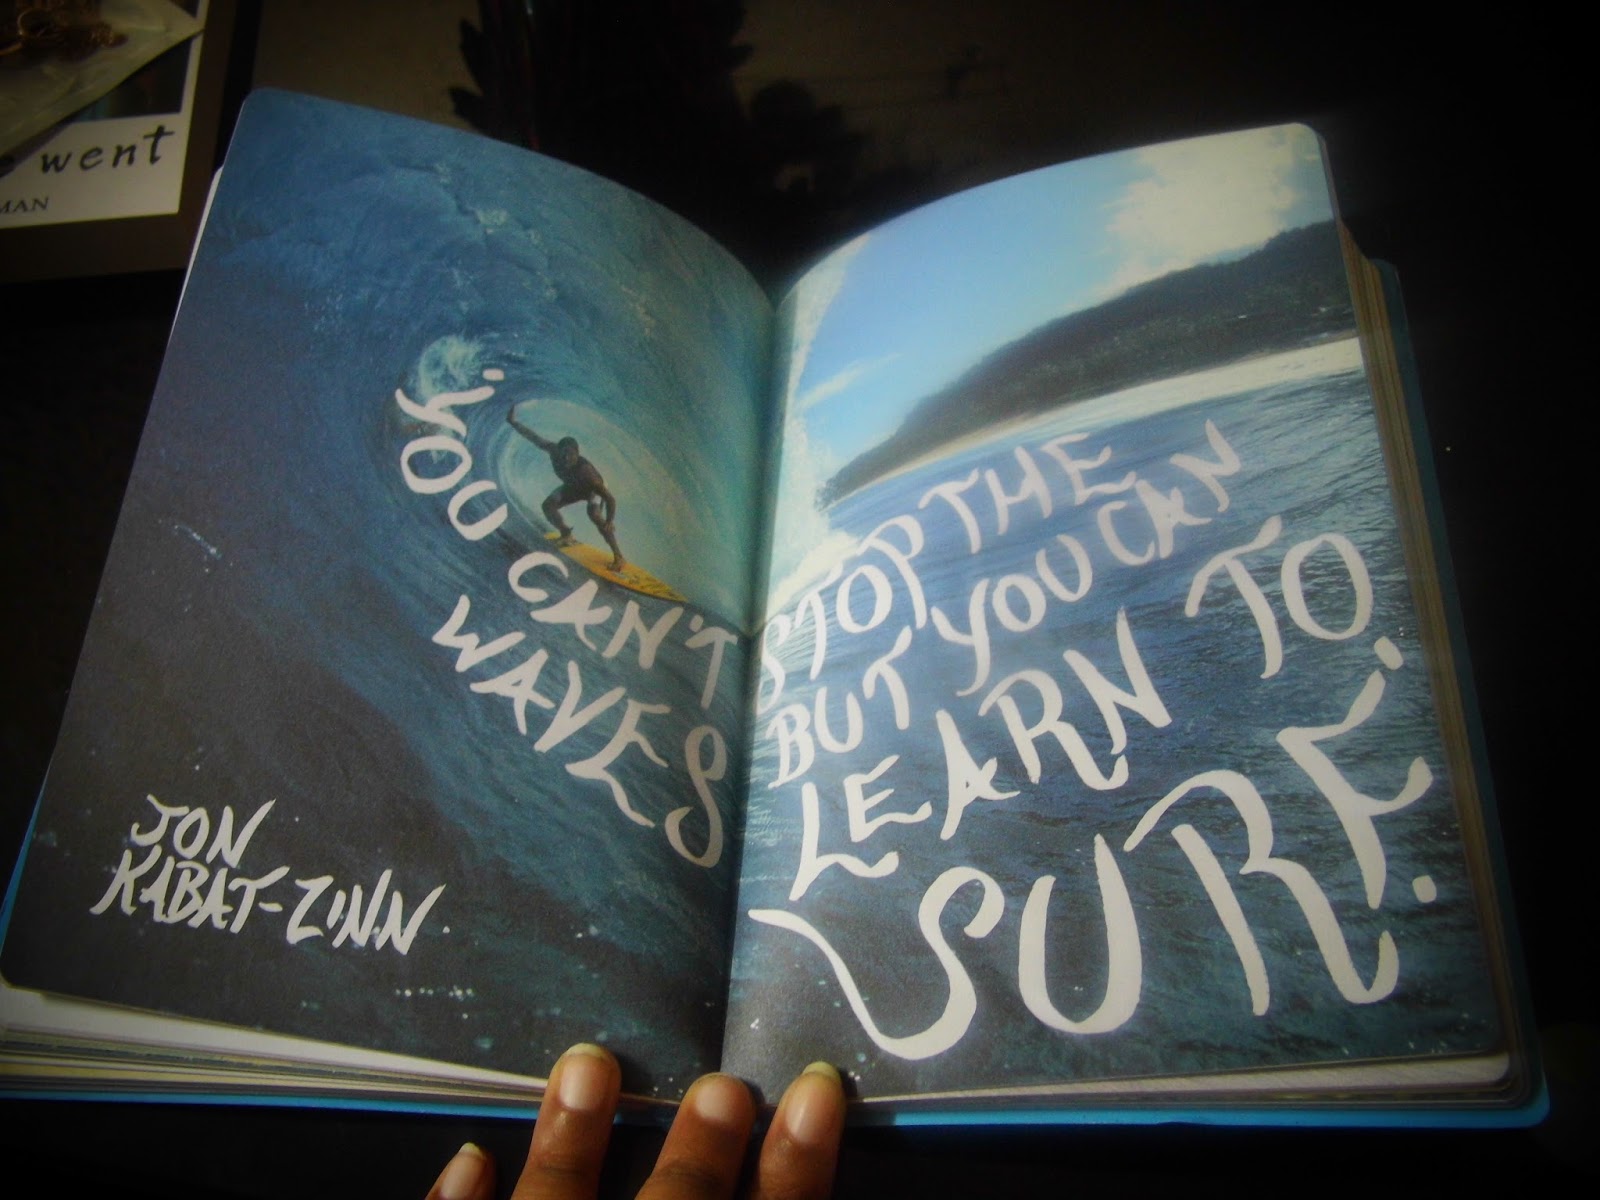 went
MAN
YOU CAN'T STOP THE
WAVES BUT YOU CAN
LEARN TO
SURF.
JON
KABAT-ZINN.